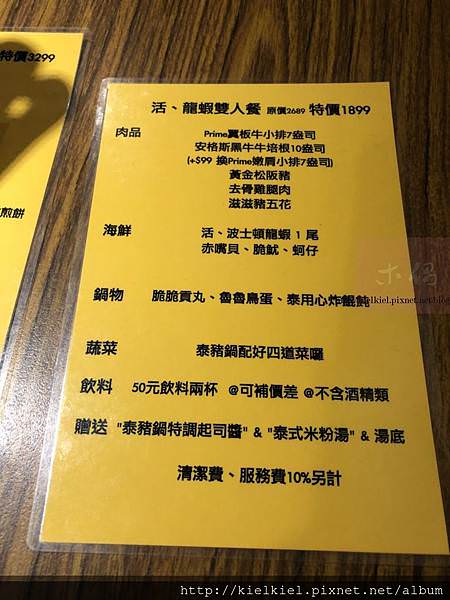 特價3299
煎餅
活、龍蝦雙人餐 原價2689 特價1899
肉品 Prime翼板牛小排7盎司
安格斯黑牛牛培根10盎司
(+$99 換Prime嫩肩小排7盎司)
黃金松阪豬
去骨雞腿肉
滋滋豬五花
海鮮 活、波士頓龍蝦 1 尾
赤嘴貝、脆魷、蚵仔
鍋物 脆脆貢丸、魯魯鳥蛋、泰用心炸餛飩
蔬菜 泰豬鍋配好四道菜囉
飲料 50元飲料兩杯 @可補價差 @不含酒精類
贈送 "泰豬鍋特調起司醬" & "泰式米粉湯" & 湯底
清潔費、服務費10%另計
kielkiel.pixnet.net/blog
http://kielkiel.pixnet.net/album